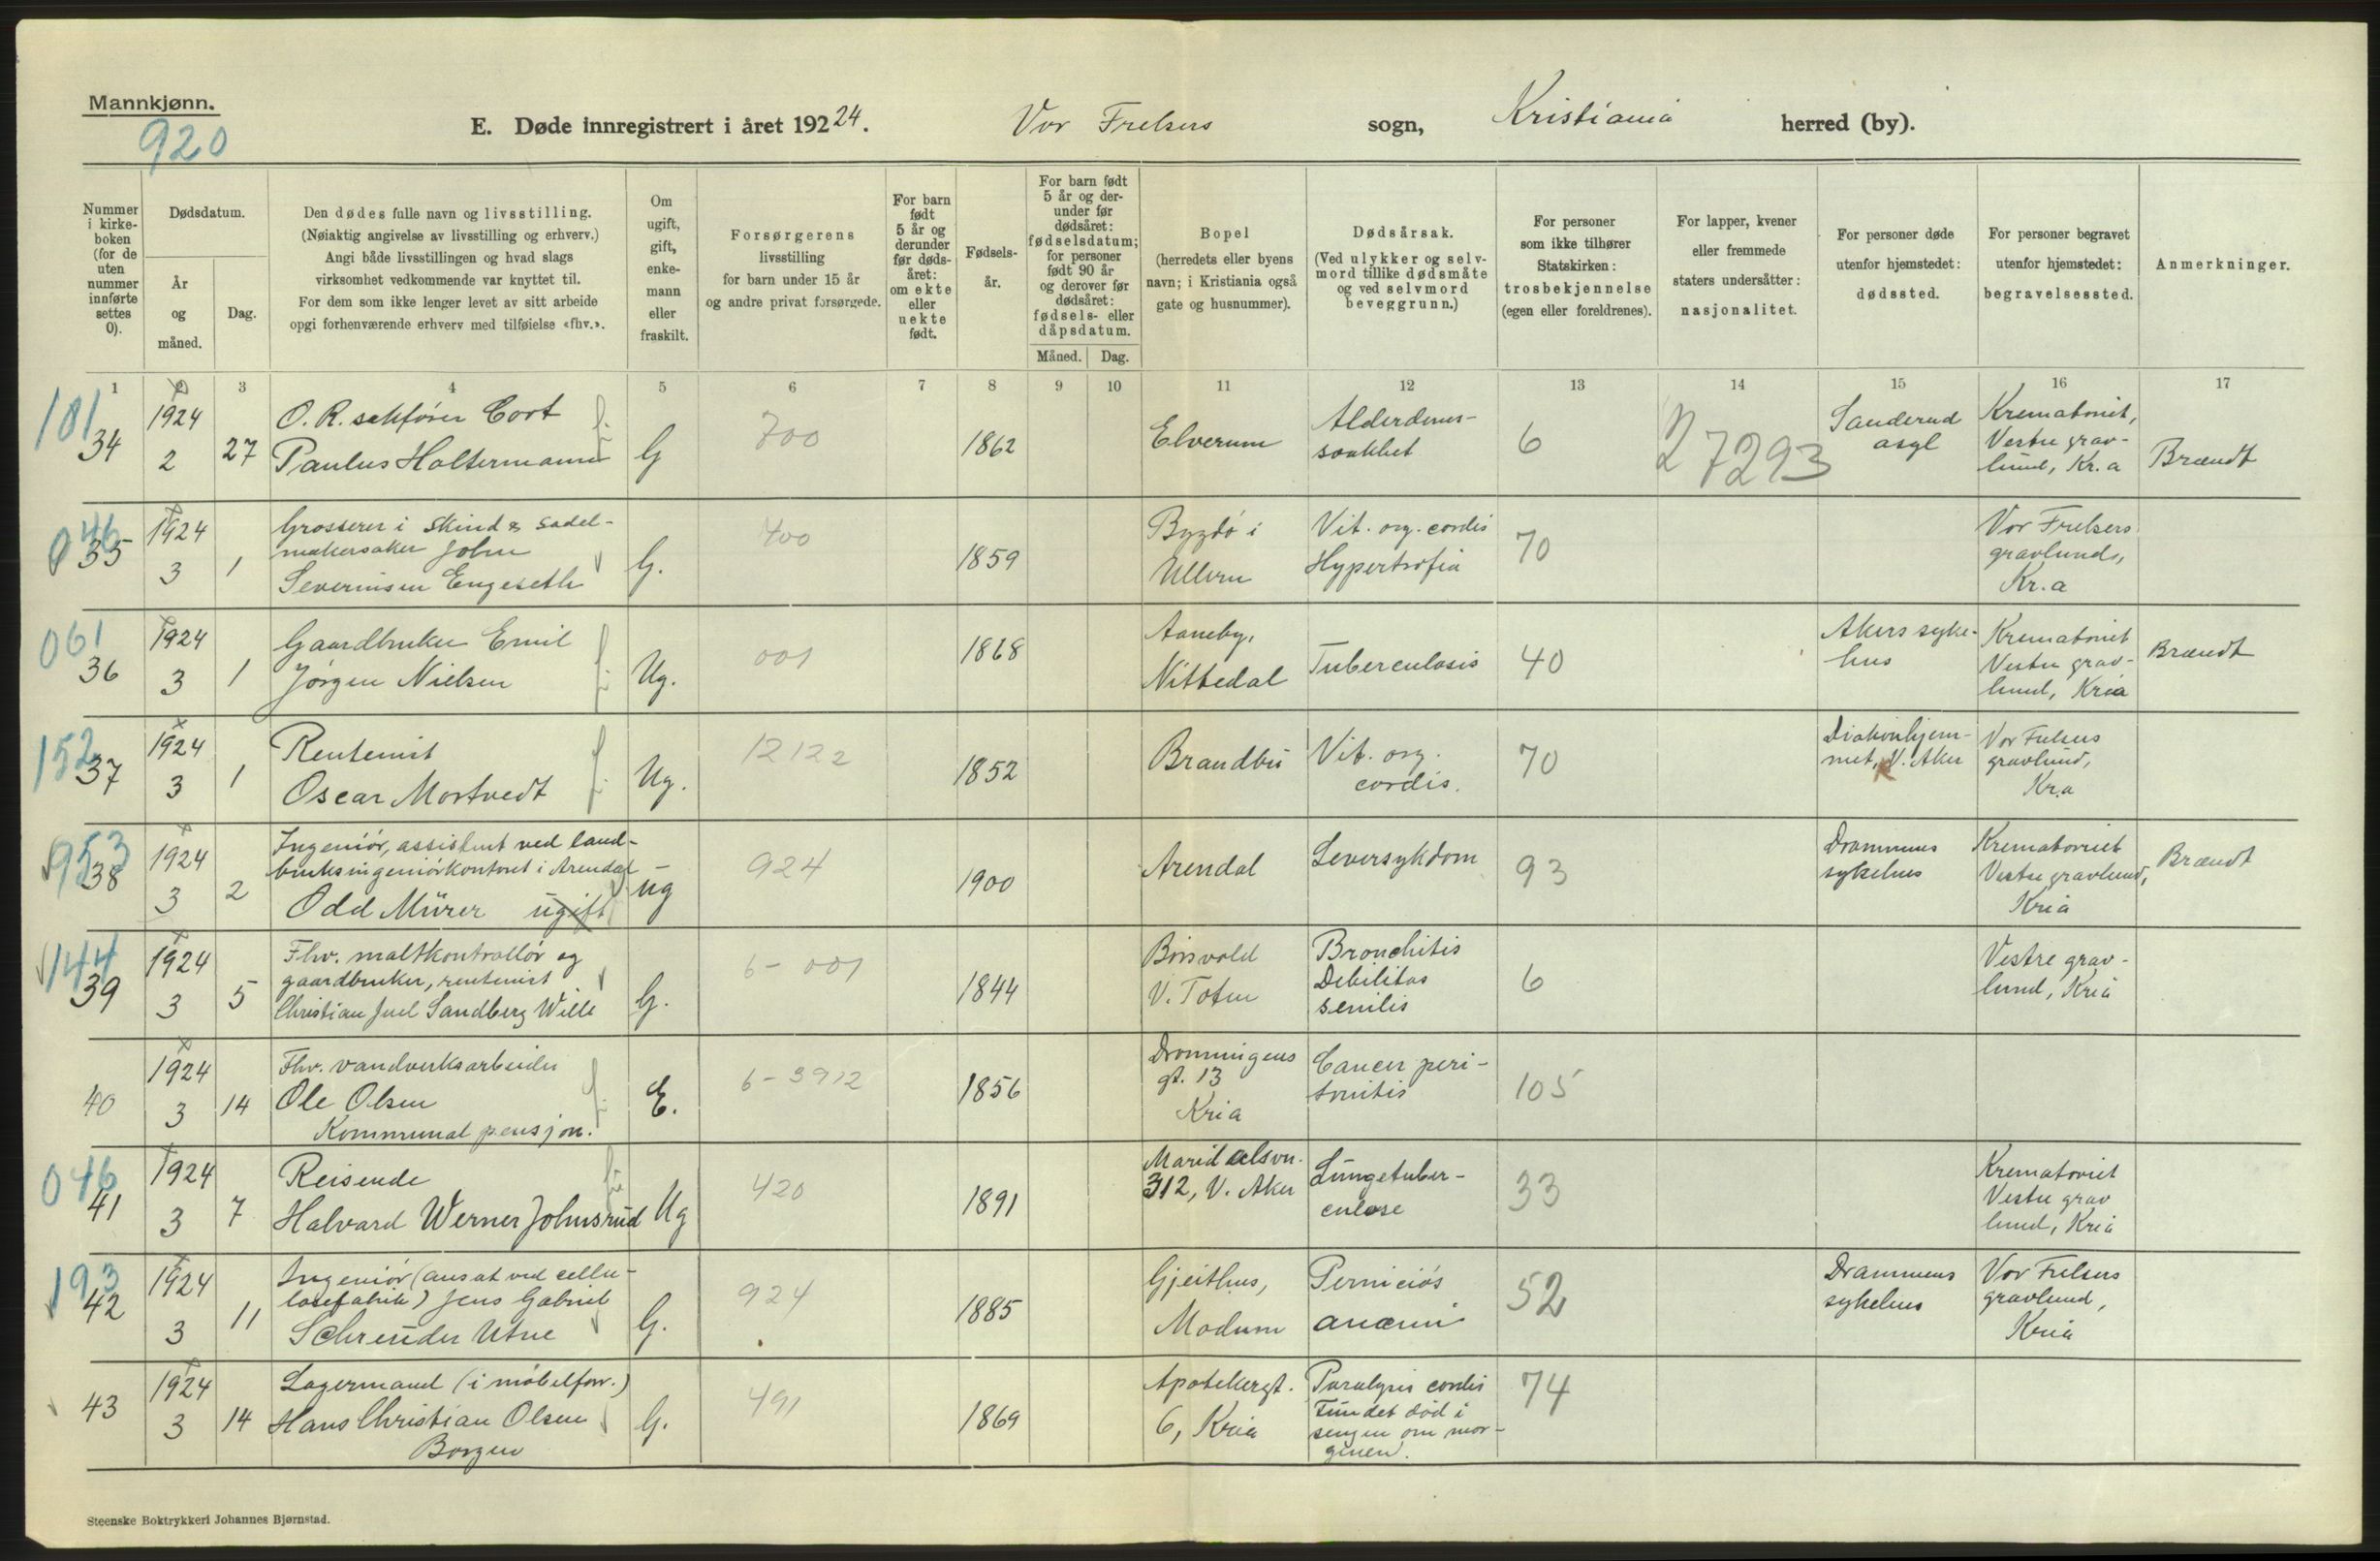 Mannkjønn.
920
E. Døde innregistrert i året 19224. Vor Frelsers sogn, Kristiania herred (by).
Nummer i kirke-boken (for de uten nummer innførte settes 0).
Dødsdatum.
År og måned.
Dag.
Den dødes fulle navn og livsstilling.
(Nøiaktig angivelse av livsstilling og erhverv.)
Angi både livsstillingen og hvad slags
virksomhet vedkommende var knyttet til.
For dem som ikke lenger levet av sitt arbeide
opgi forhenværende erhverv med tilføielse «fhv.».
Om ugift, gift, enke-mann eller fraskilt.
Forsørgerens livsstilling for barn under 15 år og andre privat forsørgede.
For barn født 5 år og derunder før døds-året: om ekte eller uekte født.
Fødsels-år.
For barn født 5 år og der-under før dødsåret: fødselsdatum; for personer født 90 år og derover før dødsåret: fødsels- eller dåpsdatum.
Måned. Dag.
Bopel (herredets eller byens navn; i Kristiania også gate og husnummer).
Dødsårsak. (Ved ulykker og selv-mord tillike dødsmåte og ved selvmord beveggrunn.)
For personer som ikke tilhører Statskirken: trosbekjennelse (egen eller foreldrenes).
For lapper, kvener eller fremmede staters undersåtter: nasjonalitet.
For personer døde utenfor hjemstedet: dødssted.
For personer begravet utenfor hjemstedet: begravelsessted.
Anmerkninger.
1 2 3 4 5 6 7 8 9 10 11 12 13 14 15 16 17
101 34 1924 2 27 O. R. sakfører Cort
Paulus Holtermann G 700 1862 Elverum Alderdoms-
svakhet 6 27293 Sanderud
asyl Krematoriet,
Vestre grav-
lund, Kr.a Brændt
046 35 1924 3 1 Grosserer i skind & sadel-
makersaker John
Severinsen Engeseth G. 400 1859 Bygdö i
Ullern Vit. org. cordis
Hypertrofia 70 Vor Frelsers
gravlund,
Kr.a
061 36 1924 3 1 Gaardbruker Emil
Jörgen Nielsen Ug. 001 1868 Aaneby,
Nittedal Tuberculosis 40 Akers syke-
hus Krematoriet
Vestre grav-
lund, Kria Brændt
152 37 1924 3 1 Rentenist
Oscar Mortvedt Ug. 12122 1852 Brandbu Vit. org.
cordis. 70 Diakonhjem-
met, V. Aker Vor Frelsers
gravlund,
Kr.a
953 38 1924 3 2 Ingeniör, assistent ved land-
bruksingeniörkontoret i Arendal
Odd Mürer ugift Ug 924 1900 Arendal Leversykdom 93 Drammens
sykehus Krematoriet
Vestre gravlund,
Kria Brændt
144 39 1924 3 5 Fhv. maltkontrollör og
gaardbruker, rentenist
Christian Juel Sandberg Wille G. 6-001 1844 Börsvold
V. Toten Bronchitis
Debilitas
senilis 6 Vestre grav-
lund, Kria
40 1924 3 14 Fhv. vandverksarbeider
Ole Olsen
Kommunal pensjon. E. 6-3912 1856 Dronningens
gt. 13
Kria Cancer peri-
tonitis 105
046 41 1924 3 7 Reisende
Halvard Werner Johnsrud Ug 420 1891 Maridalsvn.
312, V. Aker Lungetuber-
culose 33 Krematoriet
Vestre grav
lund, Kria
193 42 1924 3 11 Ingeniör (ansat ved cellu-
losefabrik) Jens Gabriel
Schreuder Utne G. 924 1885 Gjeithus,
Modum Perniciös
anæmi 52 Drammens
sykehus Vor Frelsers
gravlund,
Kria
43 1924 3 14 Lagermand (i möbelforr.)
Hans Christian Olsen
Borgen G. 491 1869 Apotekergt.
6, Kria Paralysis cordis
Fundet död i
sengen om mor-
genen. 74
Steenske Boktrykkeri Johannes Bjørnstad.